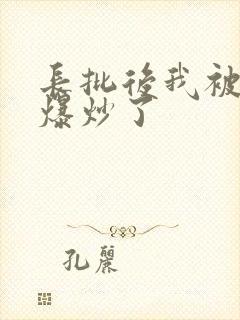 長批後我被
爆炒了
孔麗